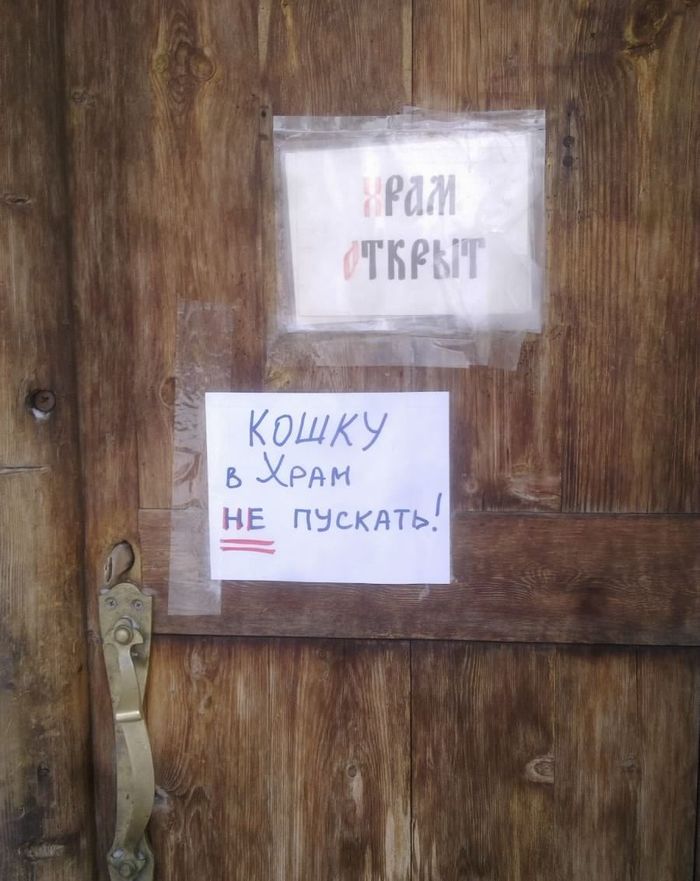 Храм
Открыт
КОШКУ
в Храм
НЕ ПУСКАТЬ!